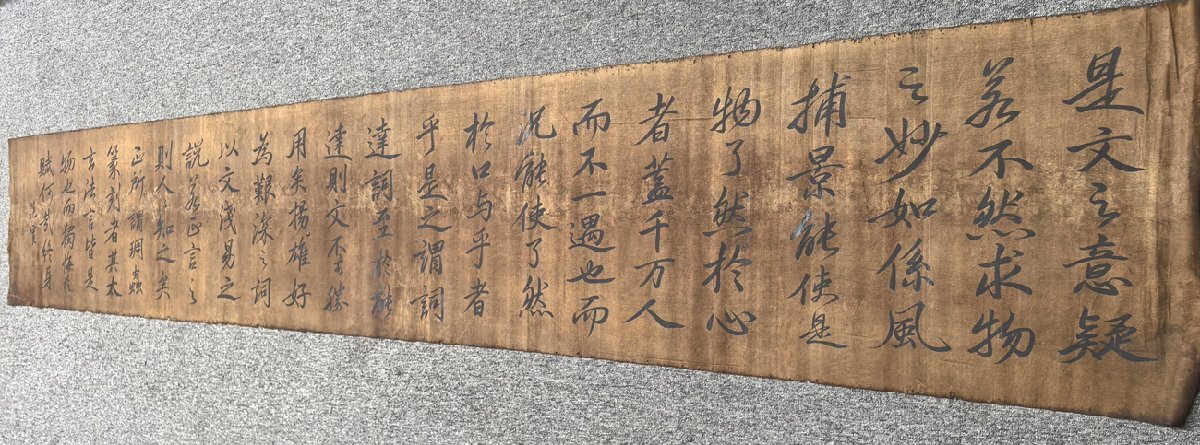 是文之意疑
若不然求物
之妙如係風
捕景能使是
物了然於心
者蓋千万人
而不一遇也而
況能使了然
於口与手者
乎是之謂詞
達詞至於能
達則文不可勝
用矣揚雄好
為艱深之詞
以文淺易之
說若正言之
則人人知之矣
正所謂琱蟲
篆刻者其太
玄法言皆是
物也而獨悔於
賦何哉終身